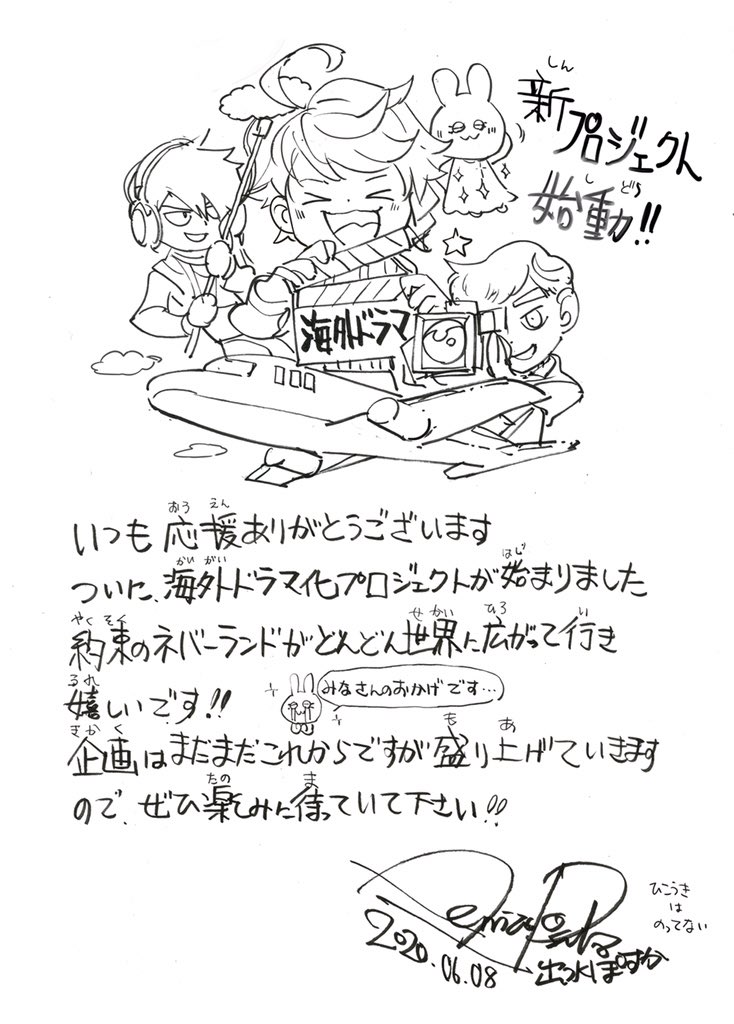 しん
新プロジェクト
しどう
始動!!
海外ドラマ
おうえん
いつも応援ありがとうございます
かいがい はじ
ついに、海外ドラマ化プロジェクトが始まりました
やくそく せかい ひろ い
約束のネバーランドがどんどん世界に広がって行き
うれ
嬉しいです!!
みなさんのおかげです…
きかく も あ
企画はまだまだこれからですが盛り上げていきます
たの ま
ので、ぜひ楽しみに待っていて下さい!!
ひこうき
は
のってない
2020.06.08
出水ぽすか